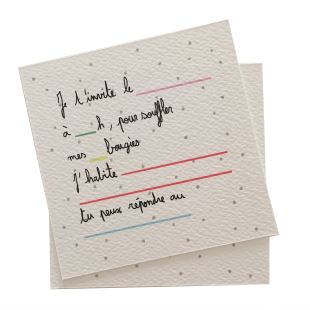 Je t'invite le
à h, pour souffler
mes bougies
j'habite
tu peux répondre au